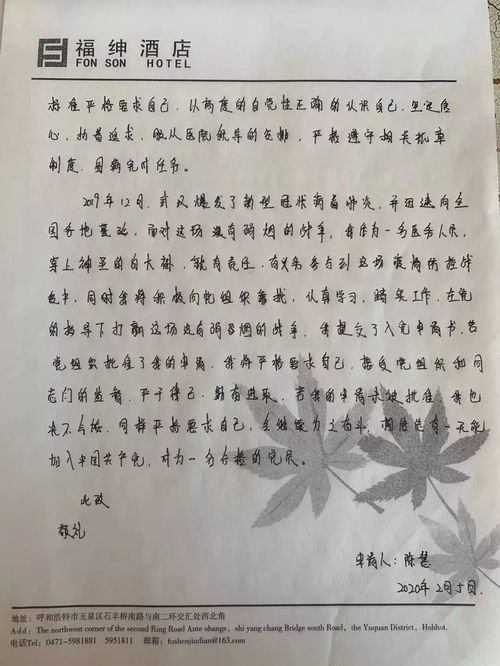 福绅酒店
FON SON HOTEL
标准严格要求自己，以高度的自觉性正确的认识自己，坚定信
心，执着追求，服从医院领导的安排，严格遵守相关规章
制度，圆满完成任务。
2019年12月，武汉爆发了新型冠状病毒肺炎，并迅速向全
国各地蔓延，面对这场没有硝烟的战争，我作为一名医务人员，
穿上神圣的白大褂，就有责任，有义务参与到这场疫情防控战
役中，同时我将积极向党组织靠拢，认真学习，踏实工作，在党
的指导下打赢这场没有硝烟的战争，我提交了入党申请书，若
党组织批准了我的申请，我将严格要求自己，接受党组织和同
志们的监督，严于律己，勤奋进取，若我的申请未被批准，我也
决不气馁，同样严格要求自己，会继续为之奋斗，相信总有一天能
加入中国共产党，成为一名合格的党员。
此致
敬礼
申请人：陈慧
2020年2月5日.
地址：呼和浩特市玉泉区石羊桥南路与南二环交汇处西北角
Add: The northwest corner of the second Ring Road Ante ohange, shi yang chang Bridge south Road, the Yuquan District, Hohhot.
电话/Tel: 0471-5981881 5951811 邮箱: fushenjiudian@163.com